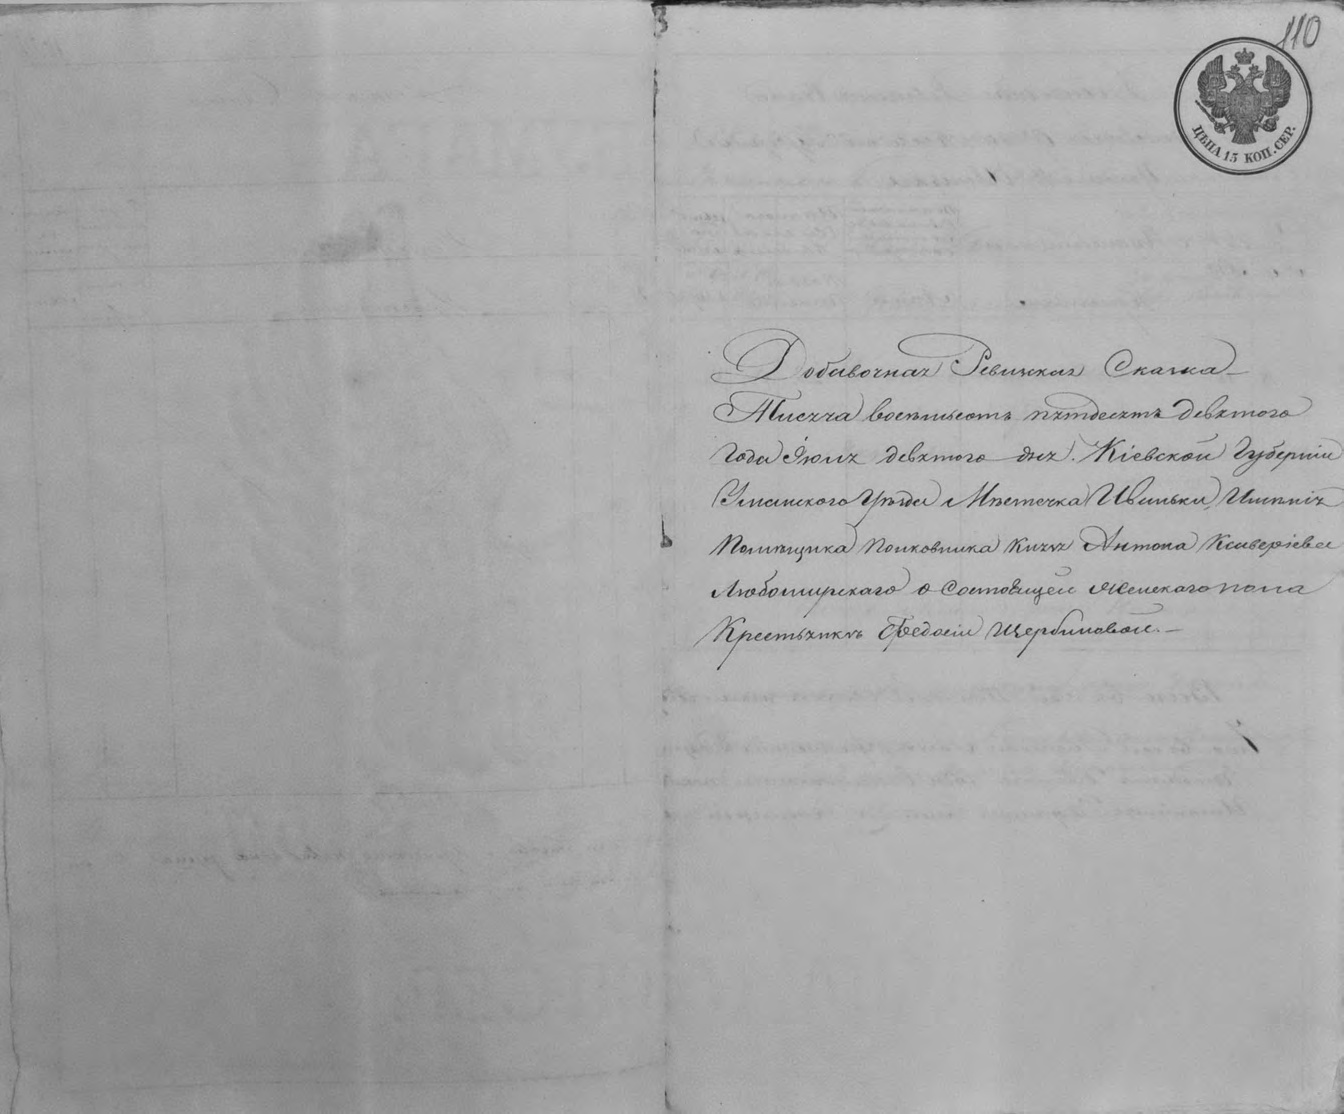 110
ЦѢНА 15 КОП. СЕР.
Добавочная Ревизская Сказка
Тысяча восемьсотъ пятдесятъ девятого
Года Июля девятого дня. Кіевской Губерніи
Уманского Уѣзда Мѣстечка Иваньки, Имѣнія
Помѣщика Полковника Князя Антона Ксаверіева
Любомирскаго о состоящей женскаго пола
Крестьянкѣ Федосіи Щербиновой.